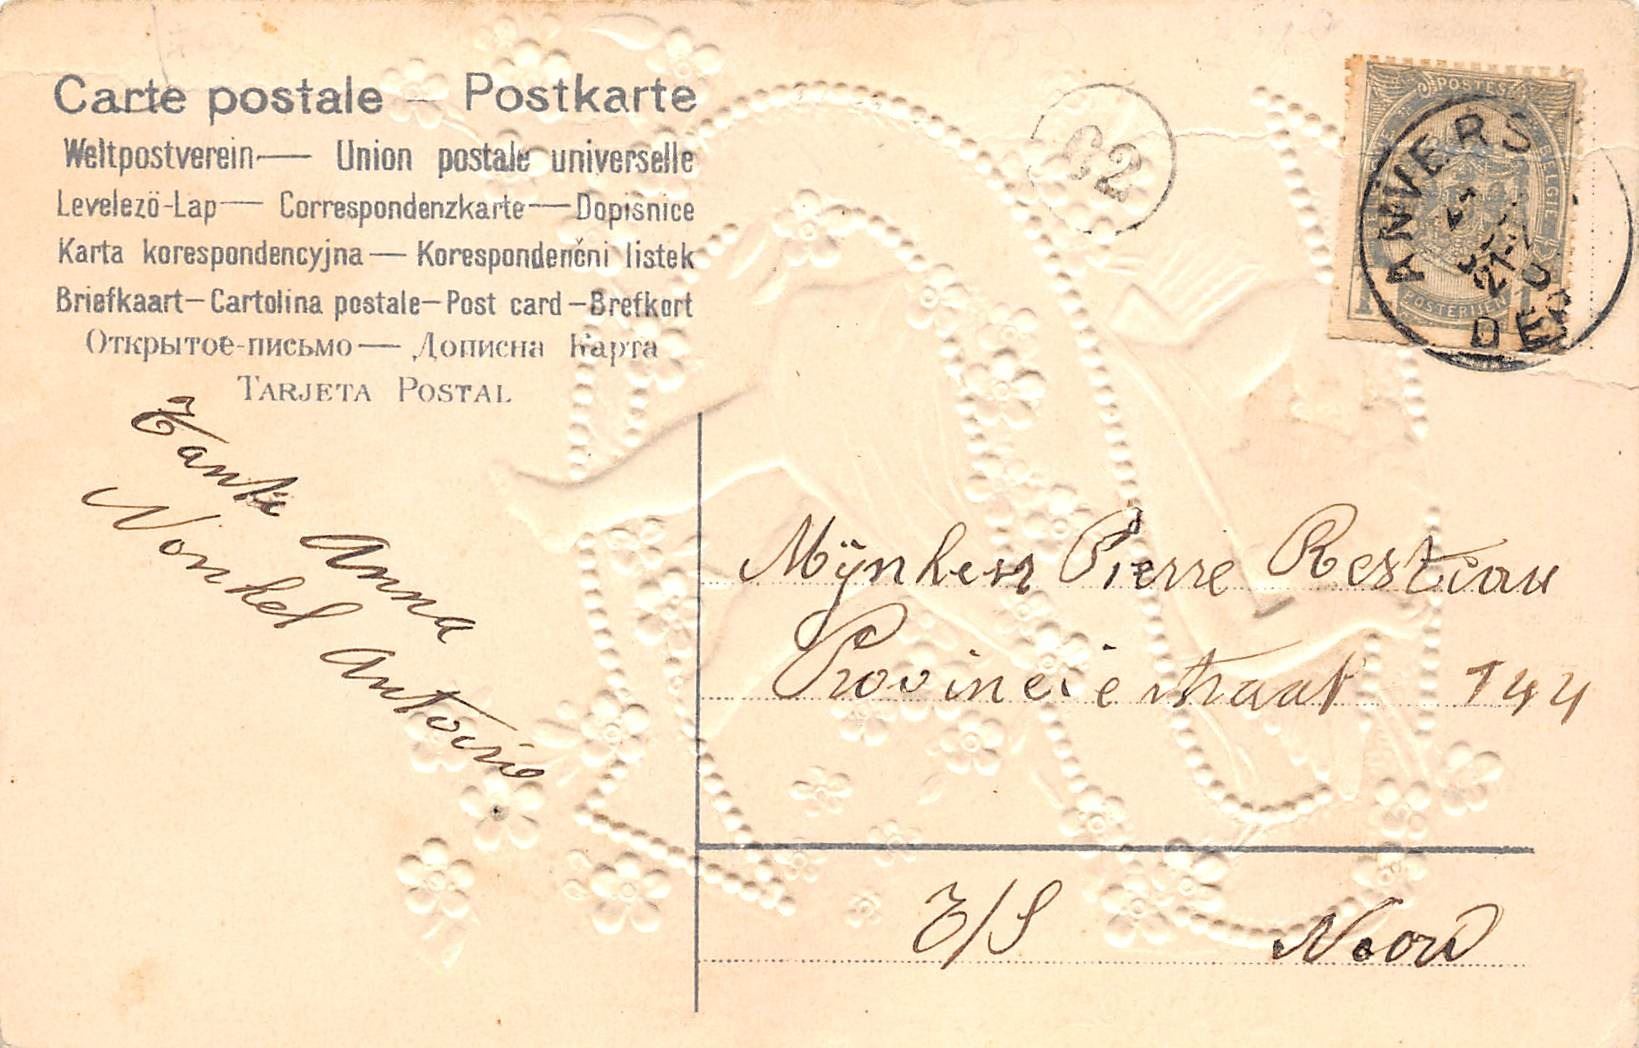 Carte postale — Postkarte
Weltpostverein — Union postale universelle
Levelezö-Lap — Correspondenzkarte — Dopisnice
Karta korespondencyjna — Korespondenčni listek
Briefkaart — Cartolina postale — Post card — Brefkort
Открытое-письмо — Дописна Карта
TARJETA POSTAL
Tante Anna
Nonkel Antoine
C2
POSTES
BELGIE
POSTERIJEN
ANVERS
Mijnheer Pierre Restiau
Provincie straat 144
E/S Noord